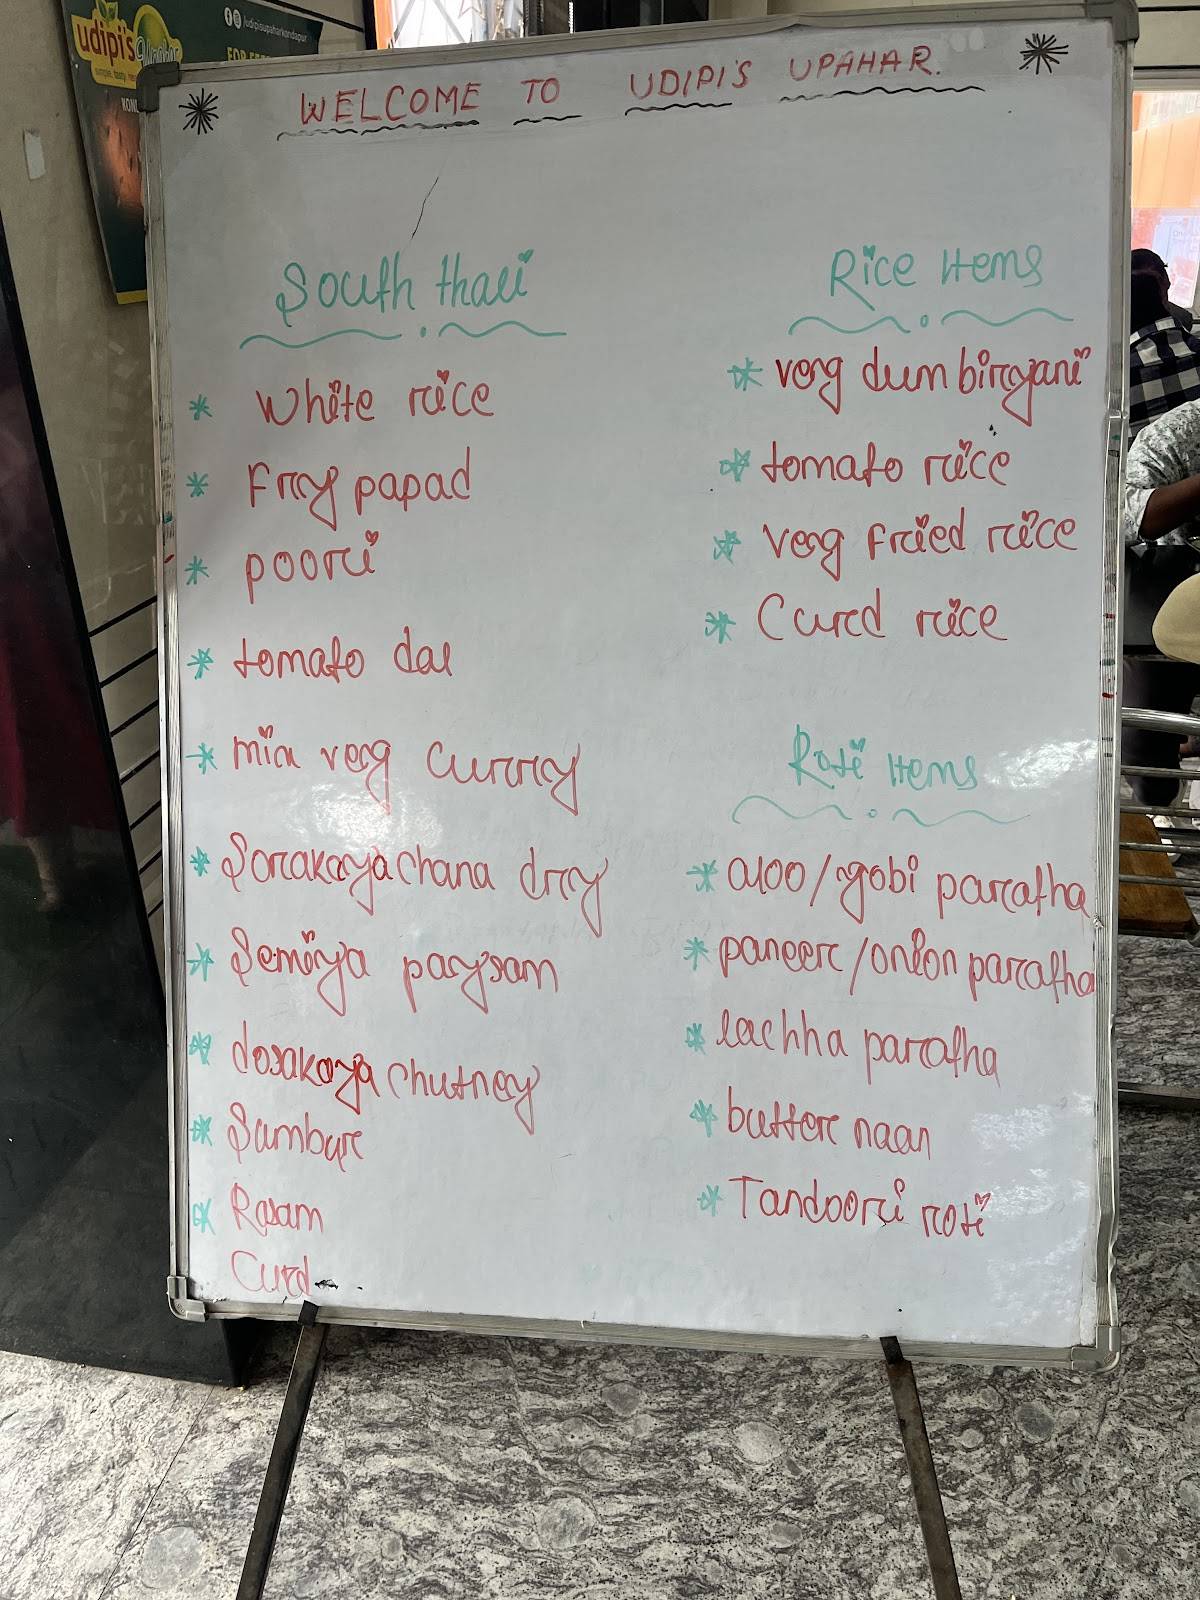 udipi's Upahar
/udipisupaharkondapur
WELCOME TO UDIPI'S UPAHAR.
South thali
* White rice
* Fry papad
* poori
* tomato dal
* mix veg curry
* Sorakaya chana dry
* Semiya paysam
* dosakaya chutney
* Sambar
* Rasam
Curd
Rice Items
* veg dum biryani
* tomato rice
* veg fried rice
* Curd rice
Roti Items
* aloo/gobi paratha
* paneer/onion paratha
* lachha paratha
* butter naan
* Tandoori roti